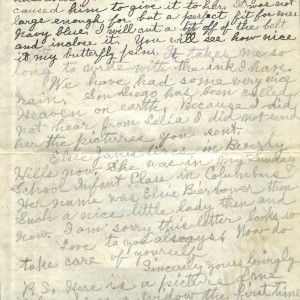 caused him to give it to her. It was not
large enough for but a perfect fit for me.
Navy blue. I will cut a bit off of the belt
and inclose it. you will see how nice
it my butterfly pins. It takes me so
long to write with the ink I have.
We have had some very nice
rain. San Diego has been called
Heaven on earth. Because I did
not hear from Celia I did not send
her the pictures you sent.
Elsie Janis lives in Beverly
Hills now. She was in my Sunday
School Infant Class in Columbus
Her name was Elsie Bierbower then
Such a nice little lady then and
now. I am sorry this letter looks so
Love to you always. Now do
take care of yourself
Sincerely yours lovingly
P. S. Here is a picture of me
window the first time